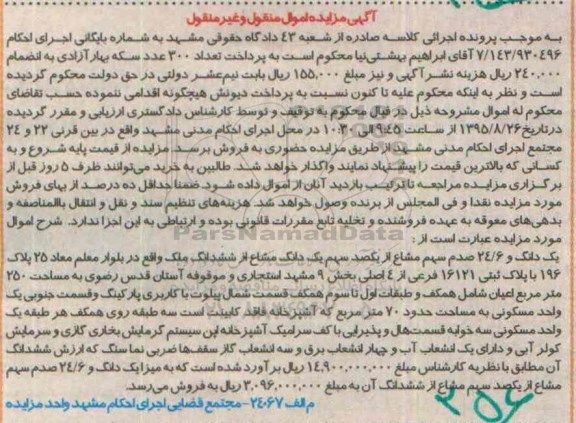 آگهی مزایده اموال منقول و غیر منقول
به موجب پرونده اجرائی کلاسه صادره از شعبه ۴۳ دادگاه حقوقی مشهد به شماره بایگانی اجرای احکام
۷/۱۴۳/۹۳۰۴۹۶ آقای ابراهیم بهشتی‌نیا محکوم است به پرداخت تعداد ۳۰۰ عدد سکه بهار آزادی به انضمام
۲۴۰.۰۰۰ ریال هزینه نشر آگهی و نیز مبلغ ۱۵۵.۰۰۰ ریال بابت نیم‌عشر دولتی در حق دولت محکوم گردیده
است و نظر به اینکه محکوم علیه تا کنون نسبت به پرداخت دیونش هیچگونه اقدامی ننموده حسب تقاضای
محکوم له اموال مشروحه ذیل در قبال محکوم به توقیف و توسط کارشناس دادگستری ارزیابی و مقرر گردیده
در تاریخ ۱۳۹۵/۸/۲۶ از ساعت ۹:۴۵ الی ۱۰:۳۰ در محل اجرای احکام مدنی مشهد واقع در بین قرنی ۲۲ و ۲۴
مجتمع اجرای احکام مدنی مشهد از طریق مزایده حضوری به فروش برسد. مزایده از قیمت پایه شروع و به
کسانی که بالاترین قیمت را پیشنهاد نمایند واگذار خواهد شد. طالبین به خرید می‌توانند ظرف ۵ روز قبل از
برگزاری مزایده مراجعه تا ترتیب بازدید آنان از اموال داده شود. ضمنا حداقل ده درصد از بهای فروش
مورد مزایده نقدا و فی المجلس از برنده وصول خواهد شد. هزینه‌های تنظیم سند و نقل و انتقال بالمناصفه و
بدهی‌های معوقه به عهده فروشنده و تخلیه تابع مقررات قانونی بوده و ارتباطی به این اجرا ندارد. شرح اموال
مورد مزایده عبارت است از :
ParsNamadData
یک دانگ و ۲۴/۶ صدم سهم مشاع از یکصد سهم یک دانگ مشاع از ششدانگ ملک واقع در بلوار معلم معاد ۲۵ پلاک
۱۹۶ با پلاک ثبتی ۱۶۱۲۱ فرعی از ۴ اصلی بخش ۹ مشهد استجاری و موقوفه آستان قدس رضوی به مساحت ۲۵۰
متر مربع اعیان شامل همکف و طبقات اول تا سوم همکف قسمت شمال پیلوت با کاربری پارکینگ و قسمت جنوبی یک
واحد مسکونی به مساحت حدود ۷۰ متر مربع که آشپزخانه فاقد کابینت است سه طبقه روی همکف هر طبقه یک
واحد مسکونی سه خوابه قسمت‌هال و پذیرایی با کف سرامیک آشپزخانه اپن سیستم گرمایش بخاری گازی و سرمایش
کولر آبی و دارای یک انشعاب آب و چهار انشعاب برق و سه انشعاب گاز سقف‌ها ضربی نما سنگ که ارزش ششدانگ
آن مطابق با نظریه کارشناس مبلغ ۱۴.۹۰۰.۰۰۰.۰۰۰ ریال برآورد شده است که به میزا یک دانگ و ۲۴/۶ صدم سهم
مشاع از یکصد سهم مشاع از ششدانگ آن به مبلغ ۳.۰۹۶.۰۰۰.۰۰۰ ریال به فروش می‌رسد.
م الف ۲۴۰۶۷- مجتمع قضایی اجرای احکام مشهد واحد مزایده